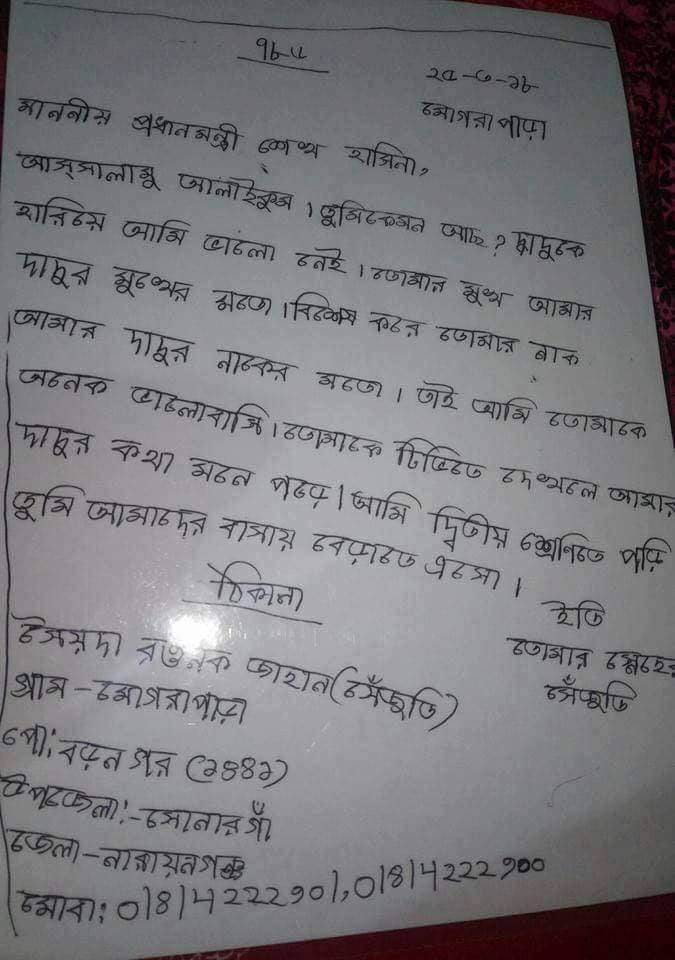 ৭৮৬
২৫-৩-১৮
মোগরাপাড়া
মাননীয় প্রধানমন্ত্রী শেখ হাসিনা,
আস্সালামু আলাইকুম। তুমি কেমন আছ? দাদুকে
হারিয়ে আমি ভালো নেই। তোমার মুখ আমার
দাদুর মুখের মতো। বিশেষ করে তোমার নাক
আমার দাদুর নাকের মতো। তাই আমি তোমাকে
অনেক ভালোবাসি। তোমাকে টিভিতে দেখলে আমার
দাদুর কথা মনে পড়ে। আমি দ্বিতীয় শ্রেনিতে পড়ি
তুমি আমাদের বাসায় বেড়াতে এসো।
ইতি
তোমার স্নেহের
সেঁজুতি
ঠিকানা
সৈয়দা রওনক জাহান (সেঁজুতি)
গ্রাম - মোগরাপাড়া
পো: বড়নগর (১৪৪১)
উপজেলা:- সোনারগাঁ
জেলা - নারায়নগঞ্জ
মোবা: 01814222901, 01814222900